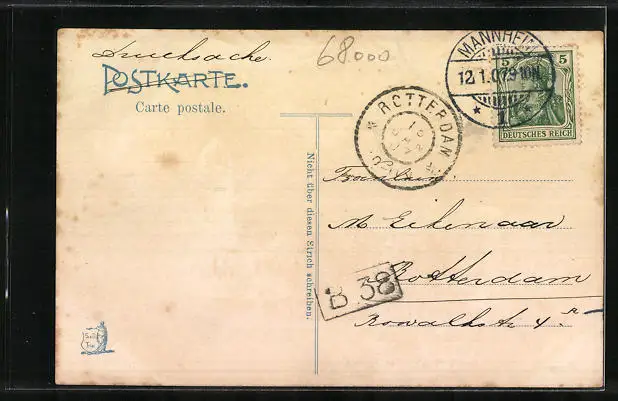 Drucksache.
68000
POSTKARTE.
Carte postale.
MANNHEIM
12.1.07.9-10N.
* 1
5 5
DEUTSCHES REICH
ROTTERDAM
Nicht über diesen Strich schreiben.
Fräulein
M. Eikenaar
Rotterdam
B 38
4